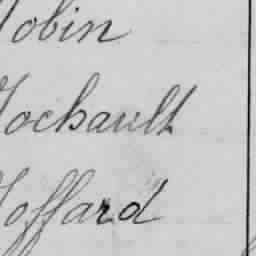 Jobin
Jochault
Joffard